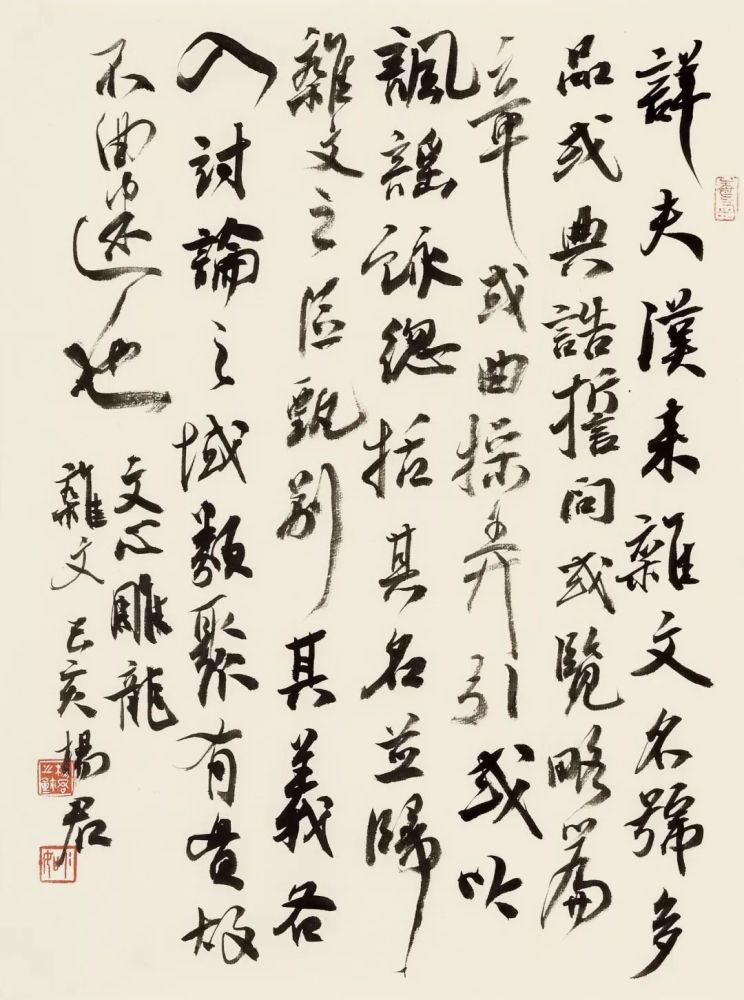 詳夫漢来雜文名號多
品或典誥誓問或覽略篇
章或曲操弄引或吟
諷謠詠總括其名並歸
雜文之區甄別其義各
入討論之域類聚有貫故
不曲述也
文心雕龍
雜文己亥楊君